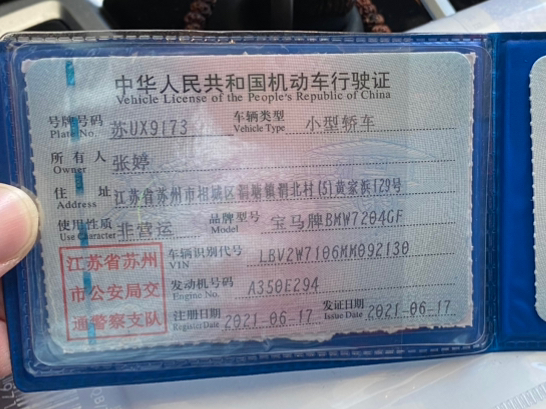 中华人民共和国机动车行驶证
Vehicle License of the People's Republic of China
号牌号码 苏UX9173 车辆类型 小型轿车
Plate No. Vehicle Type
所有人 张婷
Owner
住址 江苏省苏州市相城区渭塘镇渭北村(5)黄家浜129号
Address
使用性质 非营运 品牌型号 宝马牌BMW7204GF
Use Character Model
车辆识别代号 LBV2W7106MM092130
VIN
发动机号码 A350E294
Engine No.
注册日期 2021-06-17 发证日期 2021-06-17
Register Date Issue Date
江苏省苏州
市公安局交
通警察支队